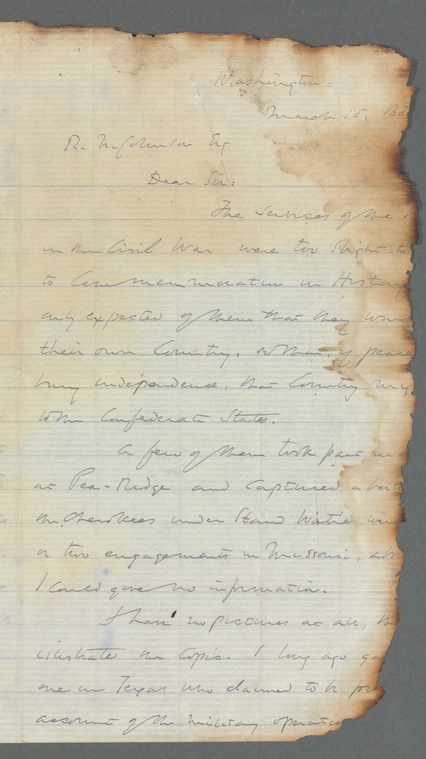 Washington:
March 15, 188
R. U. Johnson Esq
Dear Sir:
The services of the
in the Civil War were too slight to
to commemoration in History
only expected of them that they would
their own Country, so that, if peace
bring independence, that Country
to the Confederate States.
A few of them took part in
at Pea-Ridge and captured a
the Cherokees under Stand Watie
or two engagements in Missouri,
I could give no information.
I have no pictures at all,
illustrate the topic. I long ago
one in Texas who claimed to be
account of the military operations